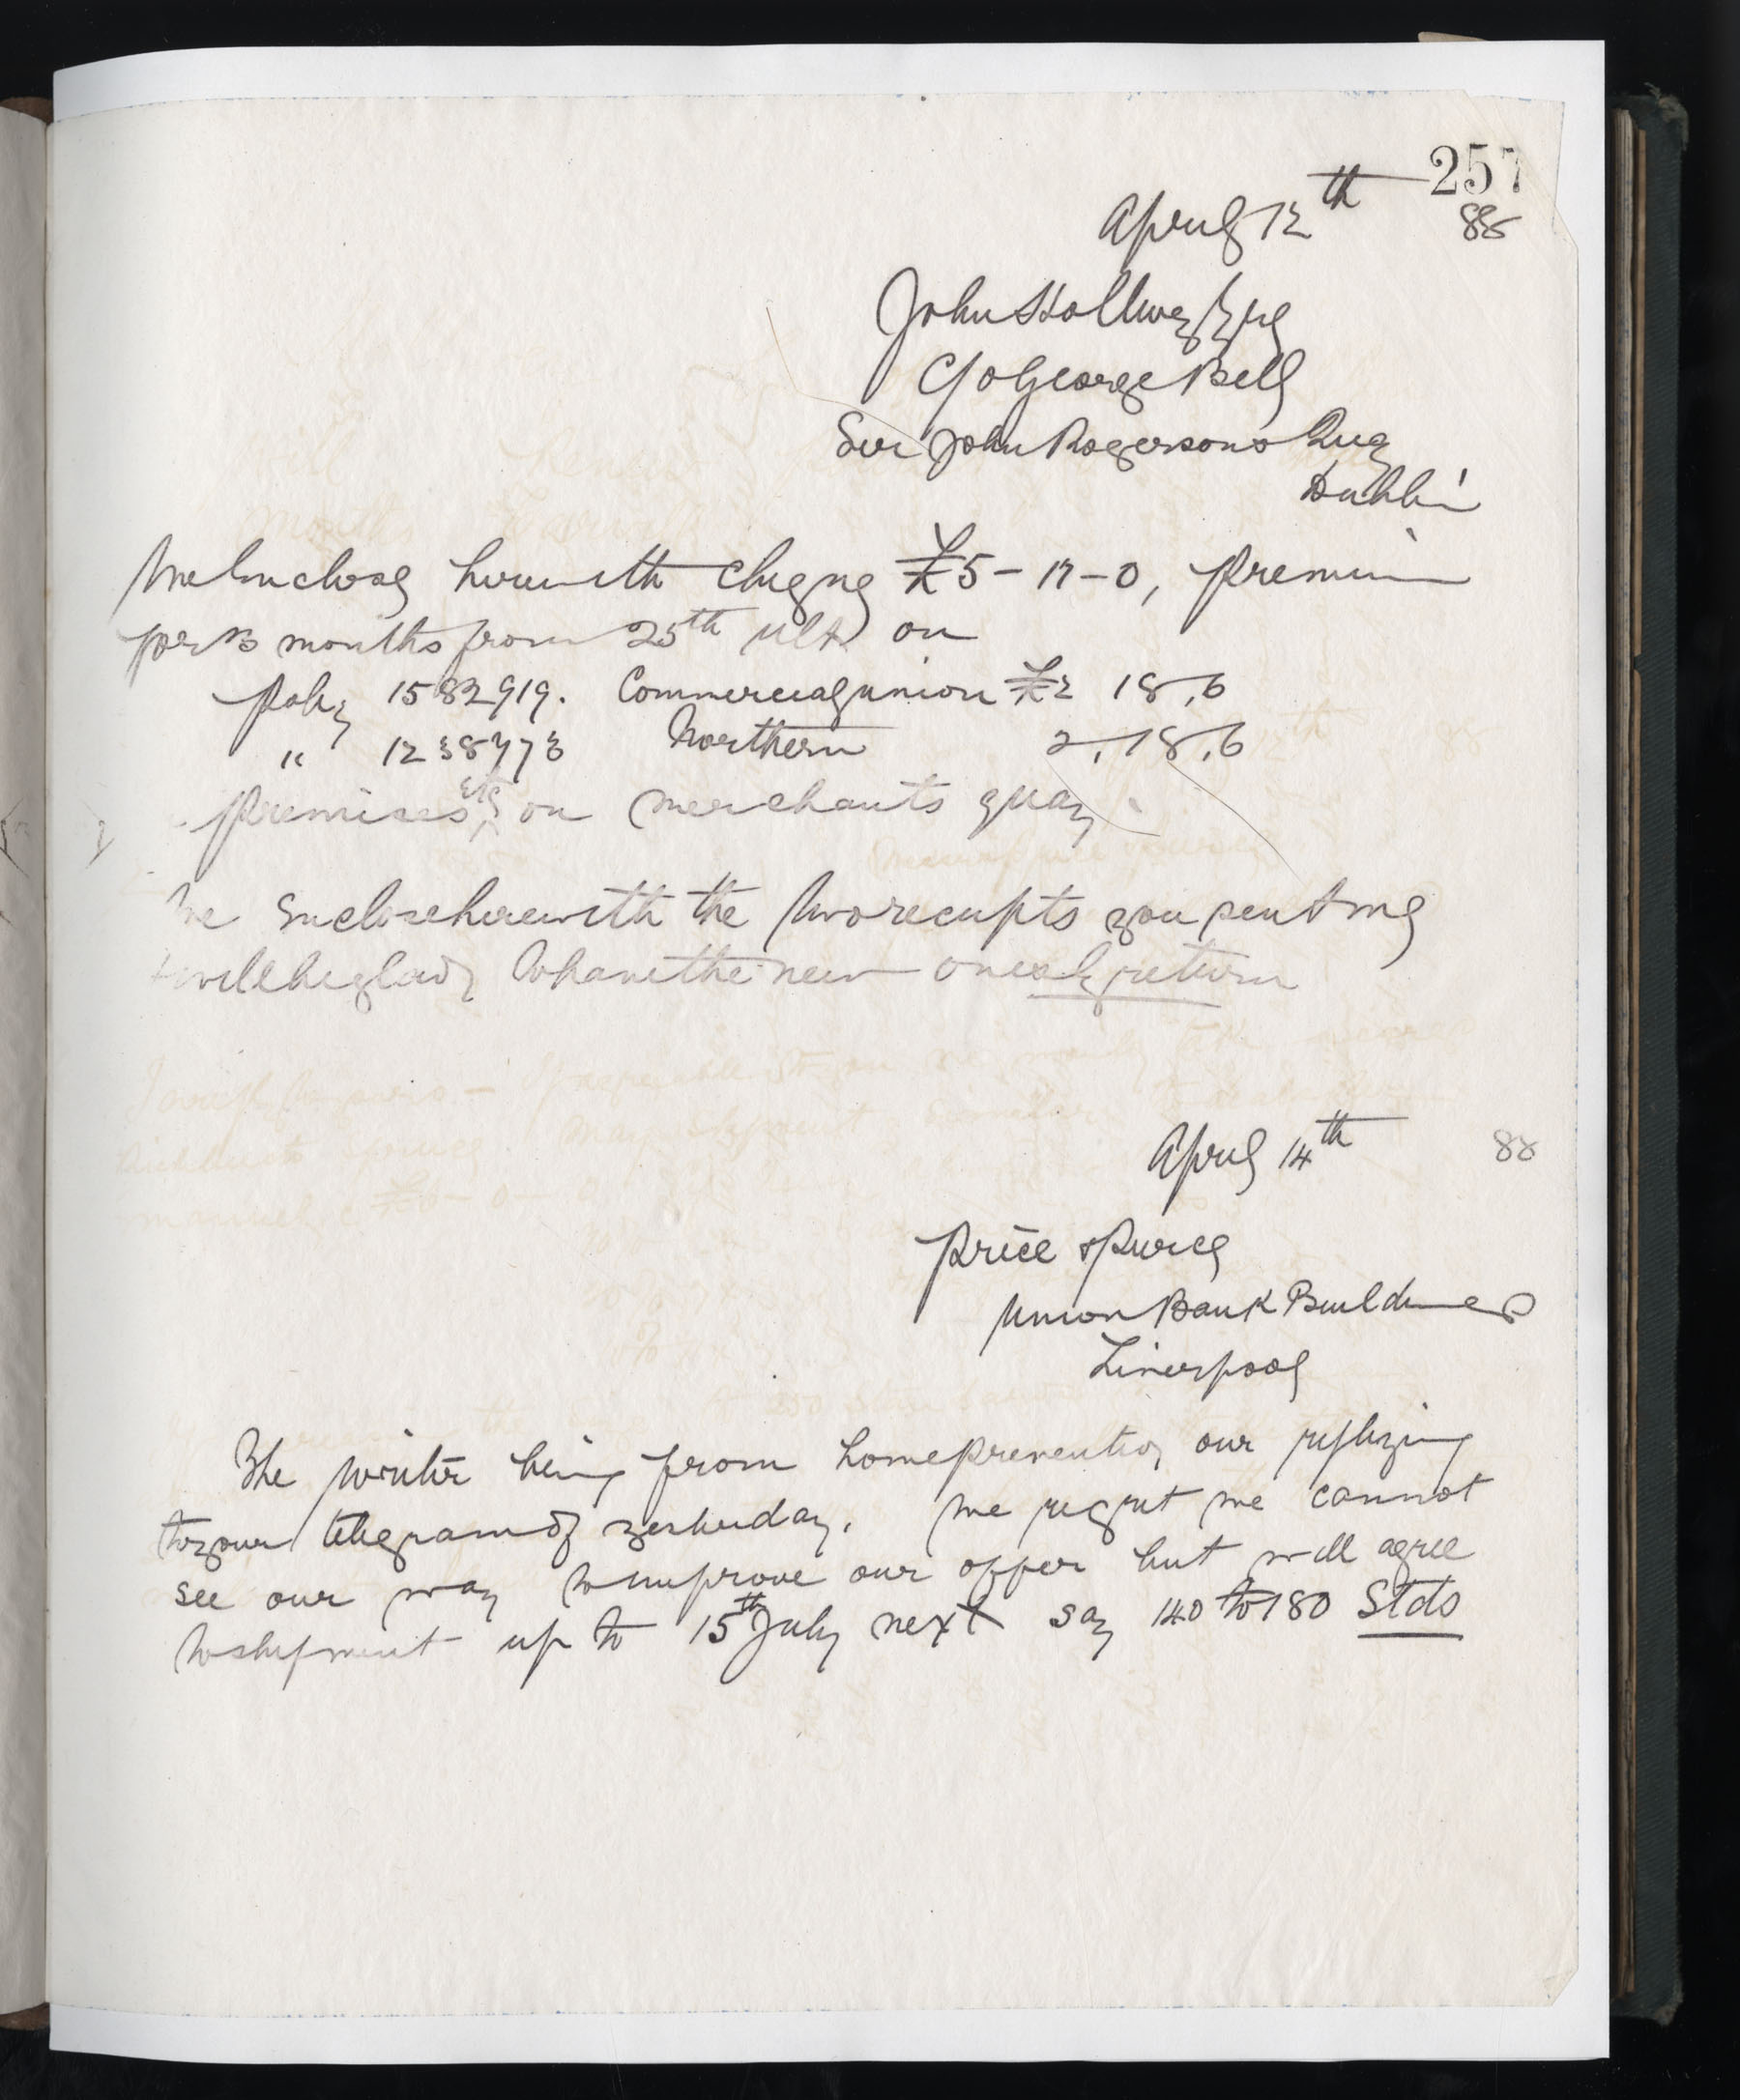 257
April 12th 88
John Hollwey Esq
C/o George Bell
Sir John Rogersons Quay
Dublin
We Enclose herewith cheque £5-17-0, premium
for 3 months from 25th ult on
Policy 1582919. Commercial union £2 18,6
" 1238773 Northern 2,18,6
premises etc on merchants quay
We Enclose herewith the two receipts you sent me
+ will be glad to have the new ones by return
April 14th 88
Price & Pierce
Union Bank Buildings
Liverpool
The writer being from home prevented our replying
to your telegram of yesterday. We regret we cannot
see our way to improve our offer but will agree
to shipment up to 15th July next say 140 to 180 Stds